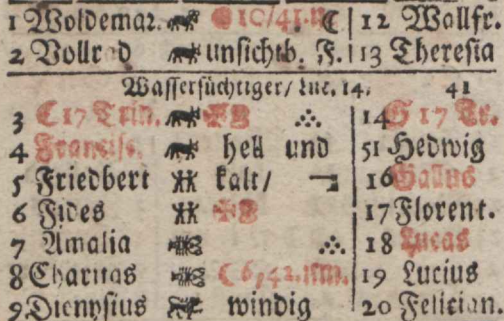 1 Woldemar. 10/41.n. ☾ 12 Wallfr.
2 Vollrad unsichtb. F. 13 Theresia
Wassersüchtiger/ Luc. 14. 41
3 17 Trin. 14 17 Tr.
4 Francisc. hell und 51 Hedwig
5 Friedbert kalt/ 16 Gallus
6 Fides 17 Florent.
7 Amalia 18 Lucas
8 Charitas ☾ 6,42.nm. 19 Lucius
9 Dionysius windig 20 Felician.